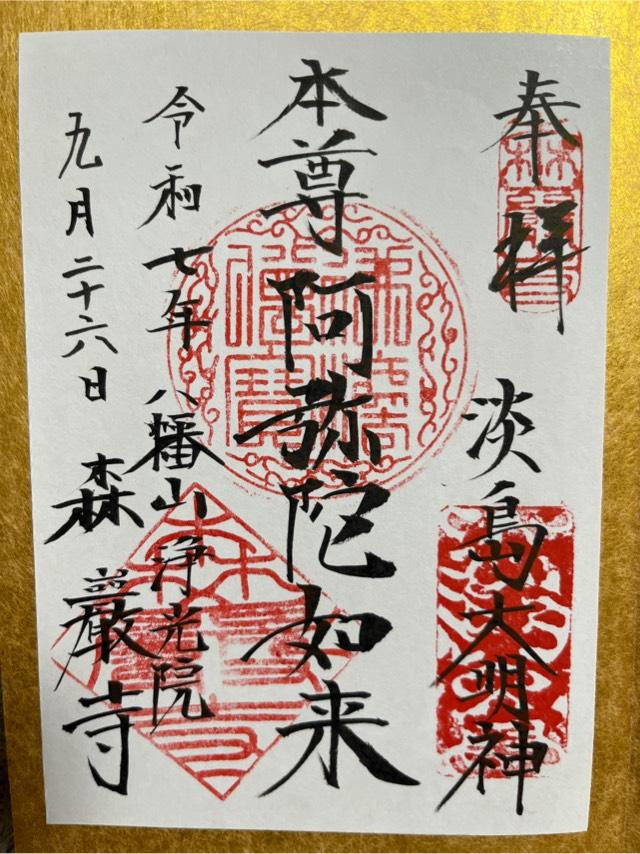 奉拝
淡島大明神
本尊阿弥陀如来
令和七年 八幡山浄光院
九月二十六日 森巖寺